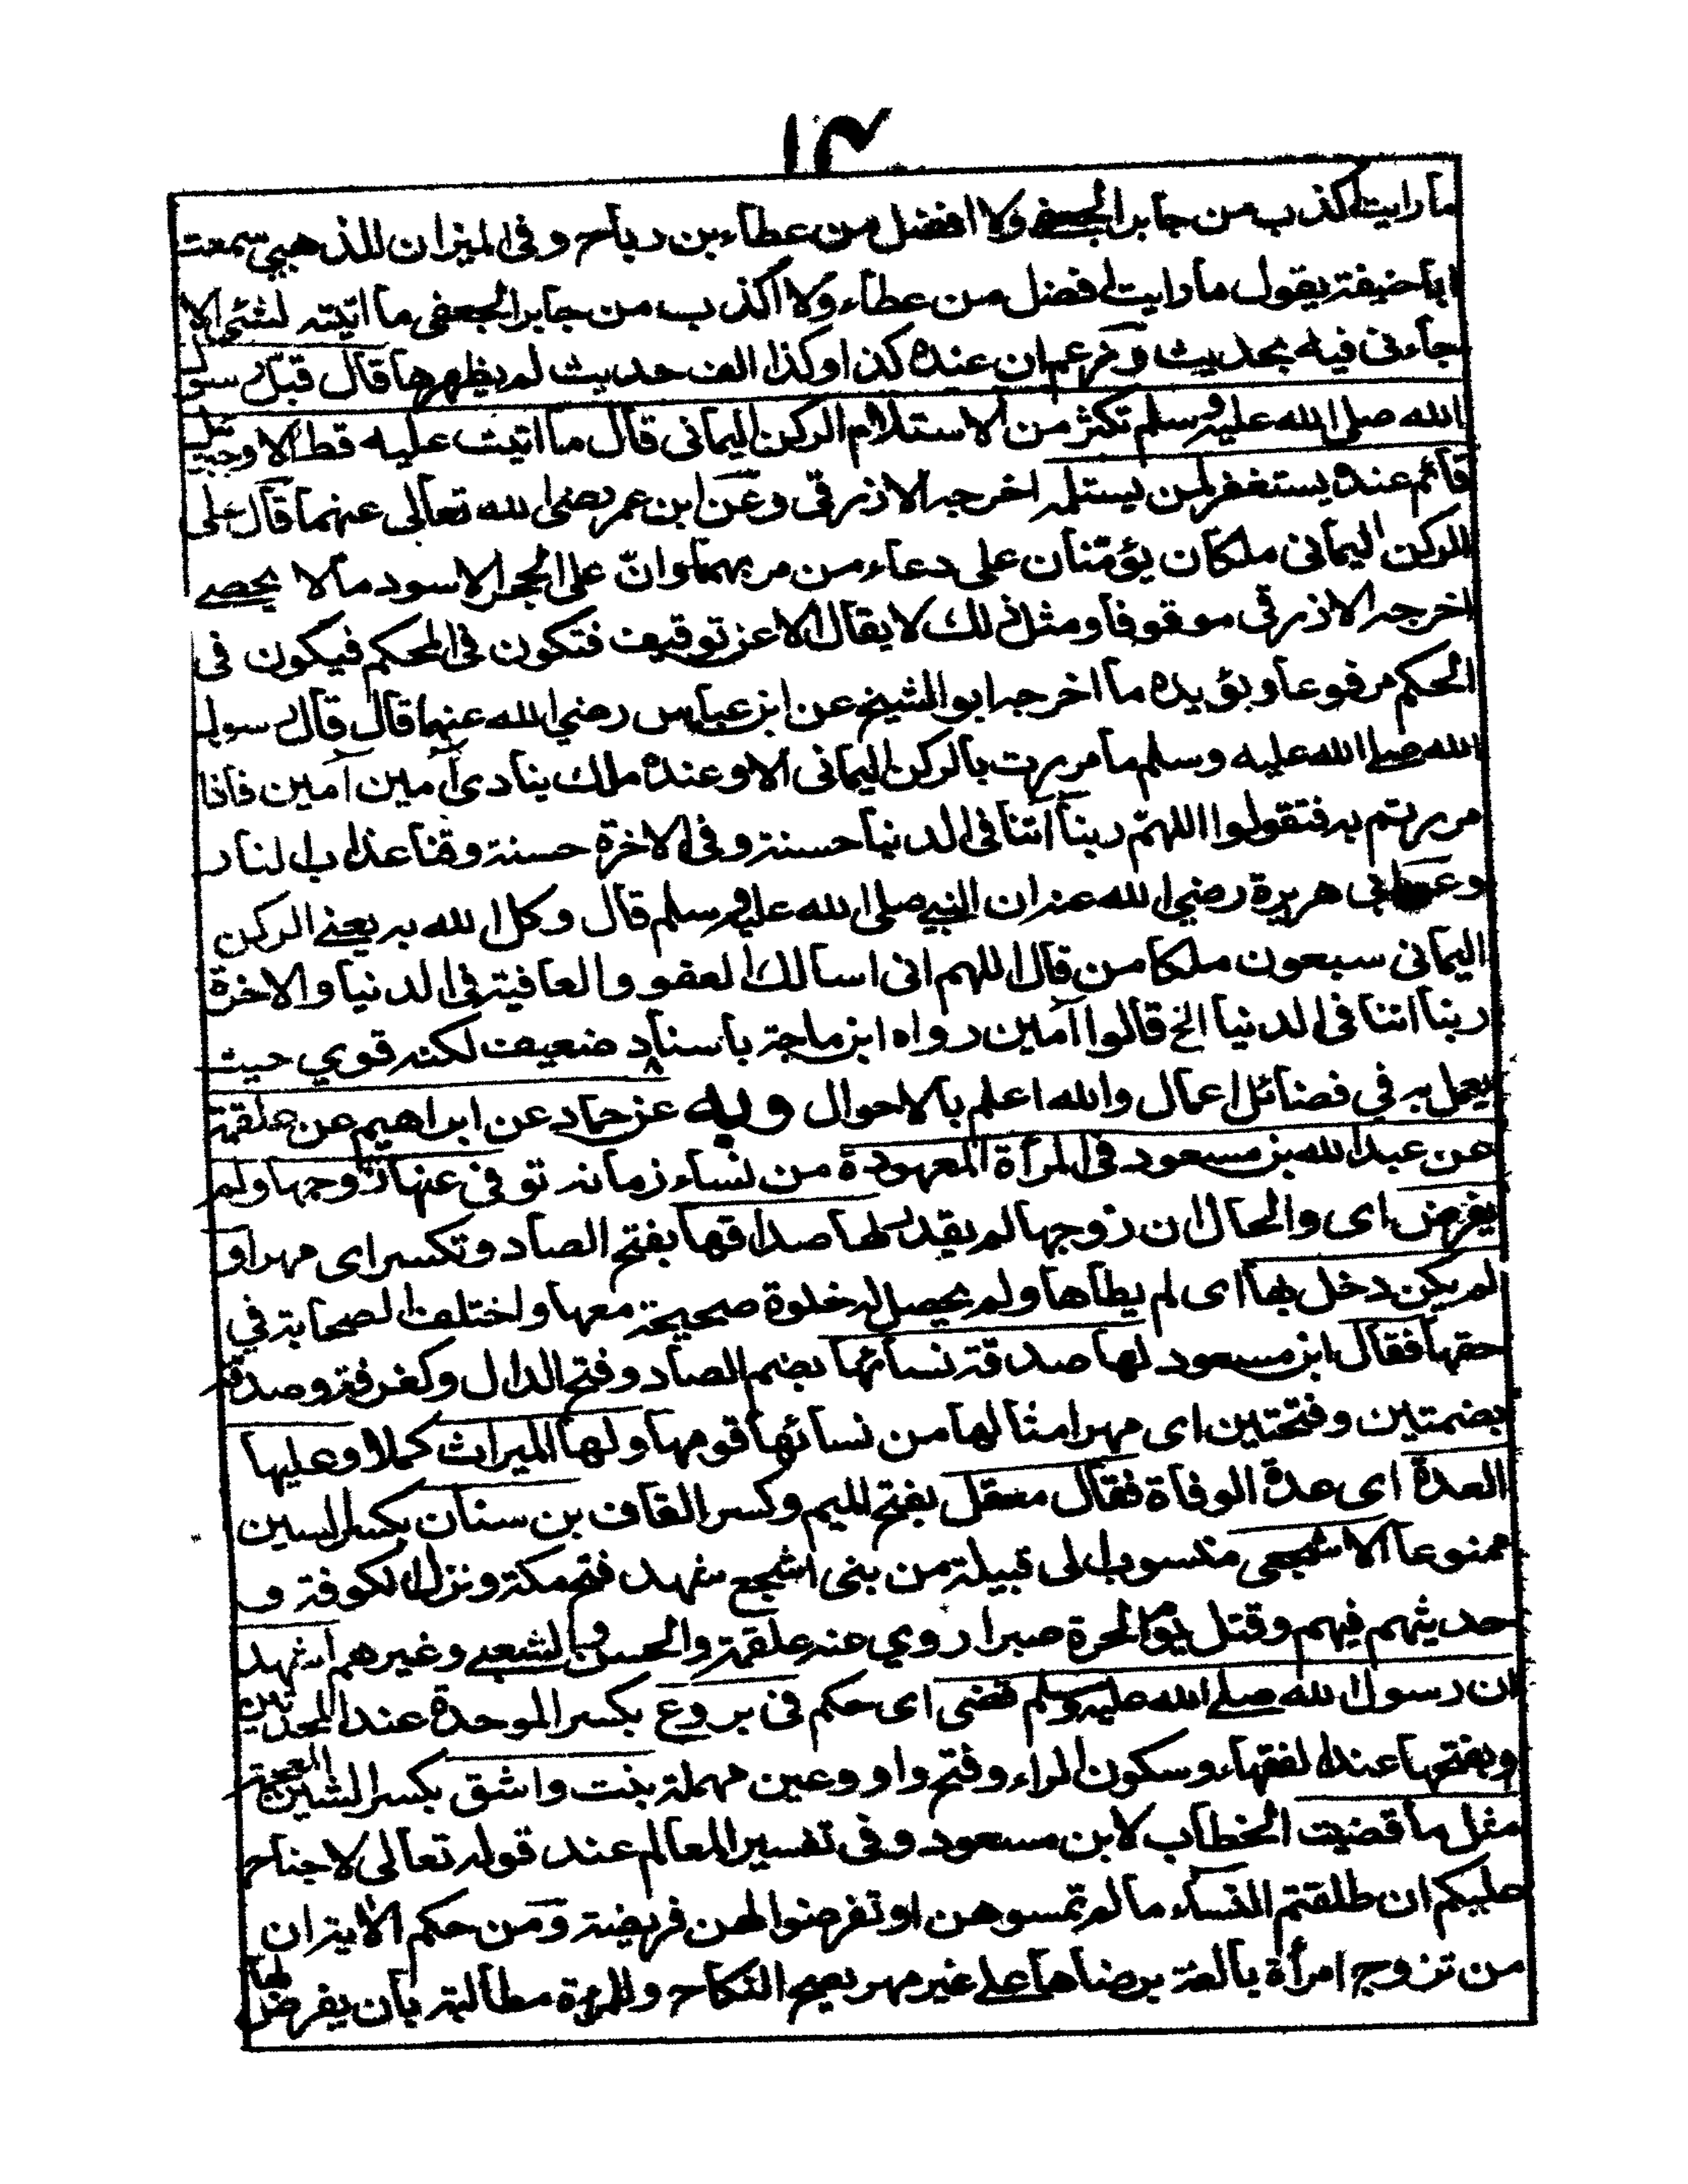 ١٣
ما رايت اكذب من جابر الجعفي ولا افضل من عطاء بن رباح وفي الميزان للذهبي سمعت
ابا حنيفة يقول ما رايت افضل من عطاء ولا اكذب من جابر الجعفي ما اتيته لشئ الا
جاءنى فيه بحديث وزعم ان عنده كذا وكذا الف حديث لم يظهرها قال قيل رسول
الله صلى الله عليه وسلم تكثر من الاستلام الركن اليمانى قال ما اتيت عليه قط الا وجبريل
قائم عنده يستغفر لمن يستلمه اخرجه الازرقى وعن ابن عمر رضى الله تعالى عنهما قال على
الركن اليمانى ملكان يؤمنان على دعاء من مر بهما وان على الحجر الاسود مالا يحصے
اخرجه الازرقى موقوفا ومثل ذلك لا يقال الا عن توقيف فتكون فى المحكم فيكون فى
الحكم مرفوعا ويؤيده ما اخرجه ابو الشيخ عن ابن عباس رضي الله عنهما قال قال رسول
الله صلے الله عليه وسلم ما مررت بالركن اليمانى الا وعنده ملك ينادى آمين آمين فاذا
مررتم به فتقولوا اللهم ربنا اتنا فى الدنيا حسنة وفى الاخرة حسنة وقنا عذاب النار
وعن ابى هريرة رضي الله عنه ان النبي صلى الله عليه وسلم قال وكل الله به يعنے الركن
اليمانى سبعون ملكا من قال اللهم انى اسالك العفو والعافية فى الدنيا والاخرة
ربنا اتنا فى الدنيا الخ قالوا آمين رواه ابن ماجة باسناد ضعيف لكنه قوي حيث
يعمل به في فضائل اعمال والله اعلم بالاحوال وبه عن حماد عن ابراهيم عن علقمة
عن عبد الله بن مسعود فى المرأة المعهودة من نساء زمانه توفي عنها زوجها ولم
يفرض اى والحال ان زوجها لم يقدر لها صداقها بفتح الصاد وتكسر اى مهرا و
لم يكن دخل بها اى لم يطاها ولم يحصل له خلوة صحيحة معها واختلف الصحابة في
حقها فقال ابن مسعود لها صدقة نسائها بضم الصاد وفتح الدال وكغرفة وصدقة
بضمتين وفتحتين اى مهرا مثالها من نسائها قومها ولها الميراث كملا وعليها
العدة اى عدة الوفاة فقال معقل بفتح الميم وكسر القاف بن سنان بكسر السين
ممنوعا الاشجعى منسوب الى قبيلة من بنى اشجع شهد فتح مكة ونزل الكوفة و
حديثهم فيهم وقتل يوم الحرة صبرا روي عنه علقمة والحسن والشعبے وغيرهم اشهد
ان رسول الله صلے الله عليه وسلم قضى اى حكم فى بروع بكسر الموحدة عند المحدثين
وبفتحها عند الفقهاء وسكون الراء وفتح واو وعين مهملة بنت واشق بكسر الشين المعجمة
مثل ما قضيت الخطاب لابن مسعود وفى تفسير المعالم عند قوله تعالى لا جناح
عليكم ان طلقتم النساء ما لم تمسوهن او تفرضوا لهن فريضة ومن حكم الاية ان
من تزوج امرأة بالغة برضاها على غير مهر يصح النكاح وللمرءة مطالبته بان يفرض لها